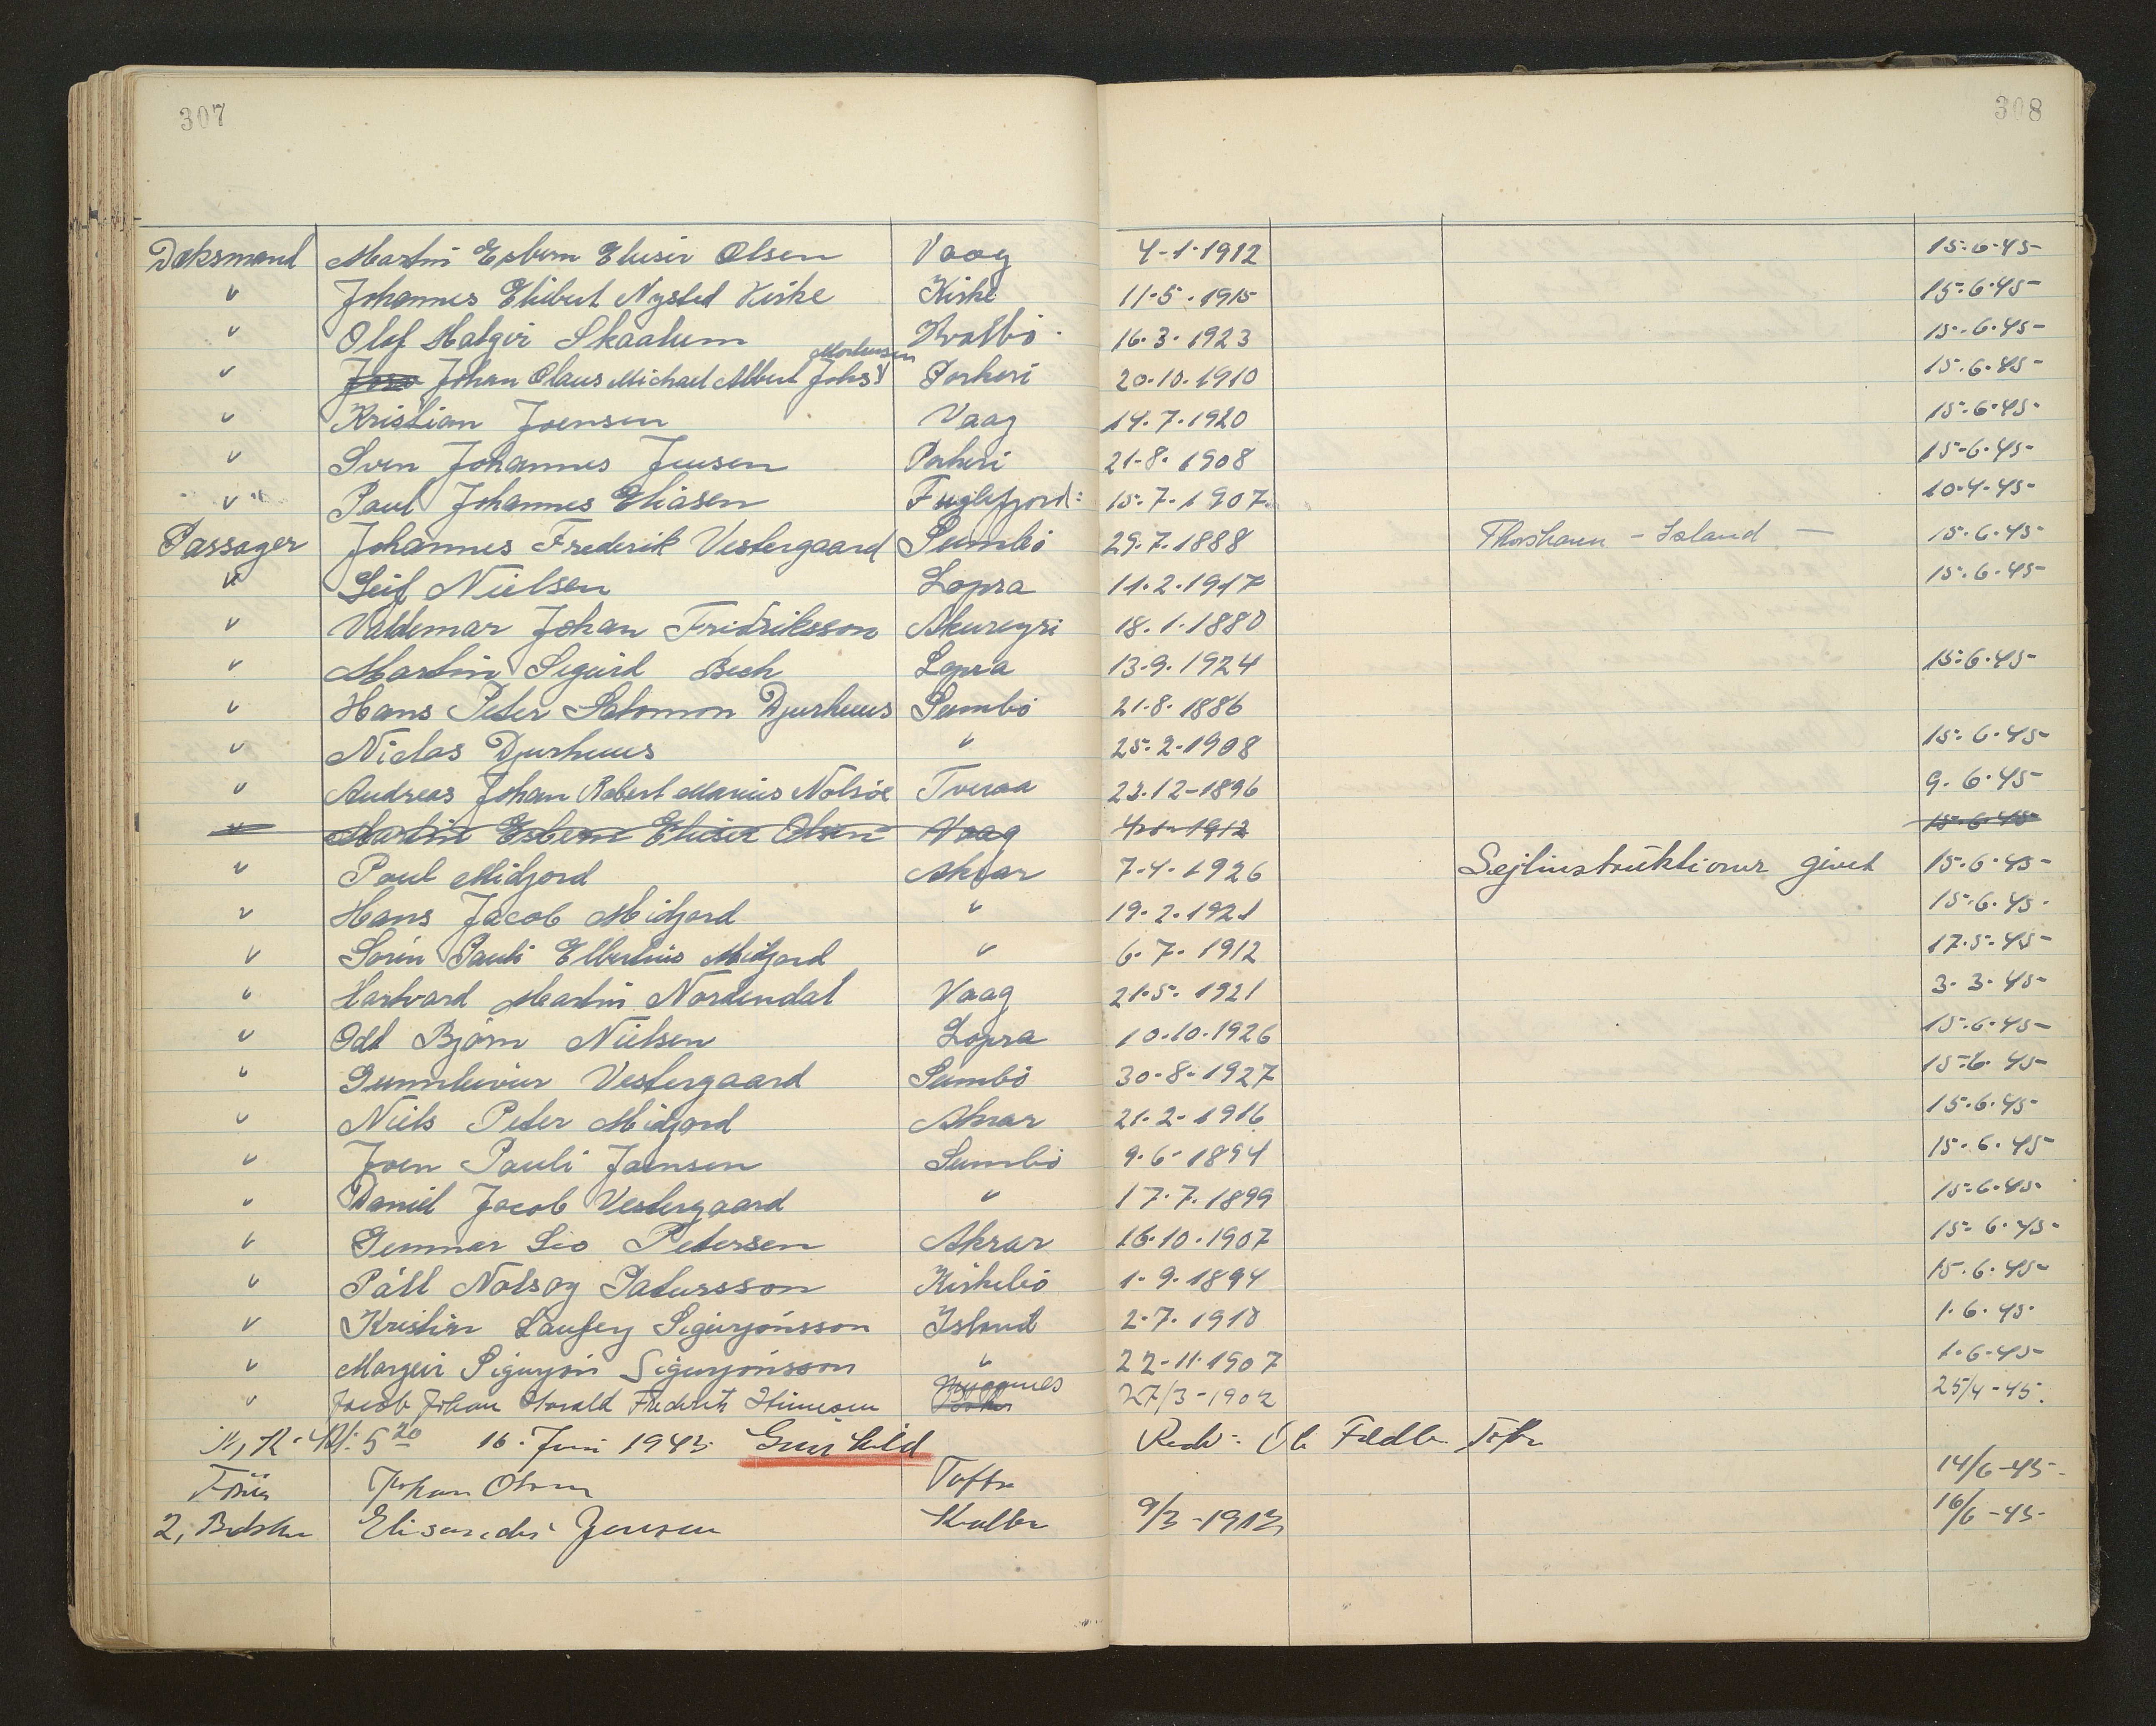 307 308
Daksmand Martin Esbern Elieser Olsen Vaag 4-1-1912 15-6-45-
" Johannes Elibert Nysted Kirke Kirke 11-5-1915 15-6-45-
" Olaf Halgir Skaalum Kvalbö 16-3-1923 15-6-45-
Mortensen
" Johan Olaus Michael Albert Johs Porkeri 20-10-1910 15-6-45-
" Kristian Joensen Vaag 14.7.1920 15-6-45-
" Sven Johannes Jensen Porkeri 21-8-1908 15-6-45-
" Paul Johannes Eliasen Fuglefjord 15.7.1907 10-4-45-
Passager Johannes Frederik Vestergaard Sumbö 29.7.1888 Thorshavn - Island - 15-6-45-
" Leif Nielsen Lopra 11.2.1917 15-6-45-
" Valdemar Johan Fridriksson Akureyri 18.1.1880
" Martin Sigurd Bech Lopra 13-9-1924 15-6-45-
" Hans Peter Salomon Djurhuus Sumbö 21-8-1886
" Niclas Djurhuus " 25-2-1908 15-6-45-
" Andreas Johan Robert Marius Nolsöe Tveraa 23.12-1896 9-6-45-
" Martin Esbern Elieser Olsen Vaag 4-1-1912 15-6-45-
" Poul Midjord Akrar 7-4-1926 Sejlinstruktioner givet 15-6-45-
" Hans Jacob Midjord " 19-2-1921 15-6-45-
" Sorin Pauli Elbertius Midjord " 6-7-1912 17-5-45-
" Hartvard Martin Nordendal Vaag 21-5-1921 3-3-45-
" Odd Björn Nielsen Lopra 10.10.1926 15-6-45-
" Gunnleivur Vestergaard Sumbö 30-8-1927 15-6-45-
" Niels Peter Midjord Akrar 21-2-1916 15-6-45-
" Joen Pauli Joensen Sumbö 9-6-1894 15-6-45-
" Daniel Jacob Vestergaard " 17-7-1899 15-6-45-
" Gunnar Leo Petersen Akrar 16-10-1907 15-6-45-
" Páll Nolsoy Patursson Kirkebö 1-9-1894 15-6-45-
" Kristinn Laufey Sigurjónsson Island 2-7-1910 1-6-45-
" Margeir Sigurjón Sigurjónsson " 22-11-1907 1-6-45-
" Jacob Johan Harald Frederik Thomsen 27/3-1902 25/4-45
Kl: 5 20 16. Juni 1945 Grunhild Red:
Johan Olsen Tofte 14/6-45-
2, Jensen 9/3-1913 16/6-45-